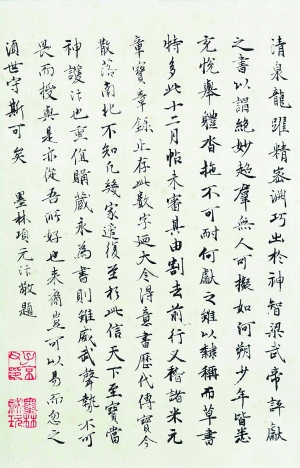 清泉龍躍精密淵巧出於神智梁武帝評獻
之書以謂絕妙超羣無人可擬如河朔少年皆悉
充悅舉體沓拖不可耐何獻之雖以隸稱而草書
特多此十二月帖未審其由割去前行又稽諸米元
章寶章錄止存此數字迺大令得意書歷代傳寶今
散落南北不知凡幾家復至於此信天下至寶當
神護汴也重值購藏永為書則雖威武聲勢不可
畏而授與是亦從吾所好也来裔豈可以易而忽之
須世守斯可矣
墨林項元汴敬題
子京父印